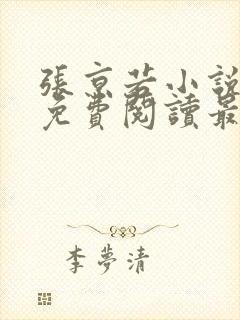 張京若小說
免費閱讀最
李夢清